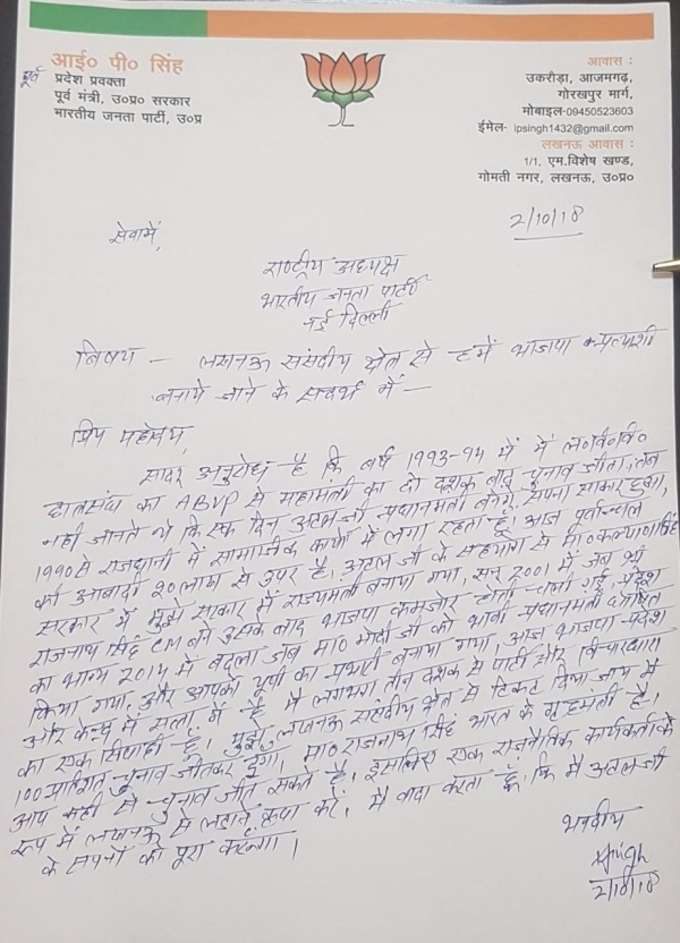 आई० पी० सिंह
पूर्व प्रदेश प्रवक्ता
पूर्व मंत्री, उ०प्र० सरकार
भारतीय जनता पार्टी, उ०प्र
आवास :
उकरौड़ा, आजमगढ़,
गोरखपुर मार्ग,
मोबाइल-09450523603
ईमेल- ipsingh1432@gmail.com
लखनऊ आवास :
1/1, एम.विशेष खण्ड,
गोमती नगर, लखनऊ, उ०प्र०
2/10/18
सेवामें,
राष्ट्रीय अध्यक्ष
भारतीय जनता पार्टी
नई दिल्ली
विषय — लखनऊ संसदीय क्षेत्र से हमें भाजपा प्रत्याशी
बनाये जाने के सन्दर्भ में —
प्रिय महोदय,
सादर अनुरोध है कि वर्ष 1993-94 में मैं ल०वि०वि०
छात्रसंघ का ABVP से महामंत्री का दो दशक बाद चुनाव जीता, तब
नही जानते थे कि एक दिन अटल जी प्रधानमंत्री बनेंगे, सपना साकार हुआ,
1990 से राजधानी में सामाजिक कार्यो में लगा रहता हूँ। आज पूर्वान्चल
की आबादी 20 लाख से उपर है, अटल जी के सहयोग से मा० कल्याण सिंह
सरकार में मुझे सरकार में राज्यमंत्री बनाया गया, सन् 2001 में जब श्री
राजनाथ सिंह CM बने उसके बाद भाजपा कमजोर होती चली गई, प्रदेश
का भाग्य 2014 में बदला जब मा० मोदी जी को भावी प्रधानमंत्री घोषित
किया गया, और आपको यूपी का प्रभारी बनाया गया, आज भाजपा प्रदेश
और केन्द्र में सत्ता में है मै लगभग तीन दशक से पार्टी और विचारधारा
का एक सिपाही हूँ। मुझे लखनऊ संसदीय क्षेत्र से टिकट दिया जाय मै
100 प्रतिशत चुनाव जीतकर दूंगा, मा० राजनाथ सिंह भारत के गृहमंत्री है,
आप कही से चुनाव जीत सकते है, इसलिए एक राजनैतिक कार्यकर्ता के
रूप में लखनऊ से लड़ाने कृपा करें, मै वादा करता हूँ, कि मै अटल जी
के सपनों को पूरा करूंगा।
भवदीय
2/10/18